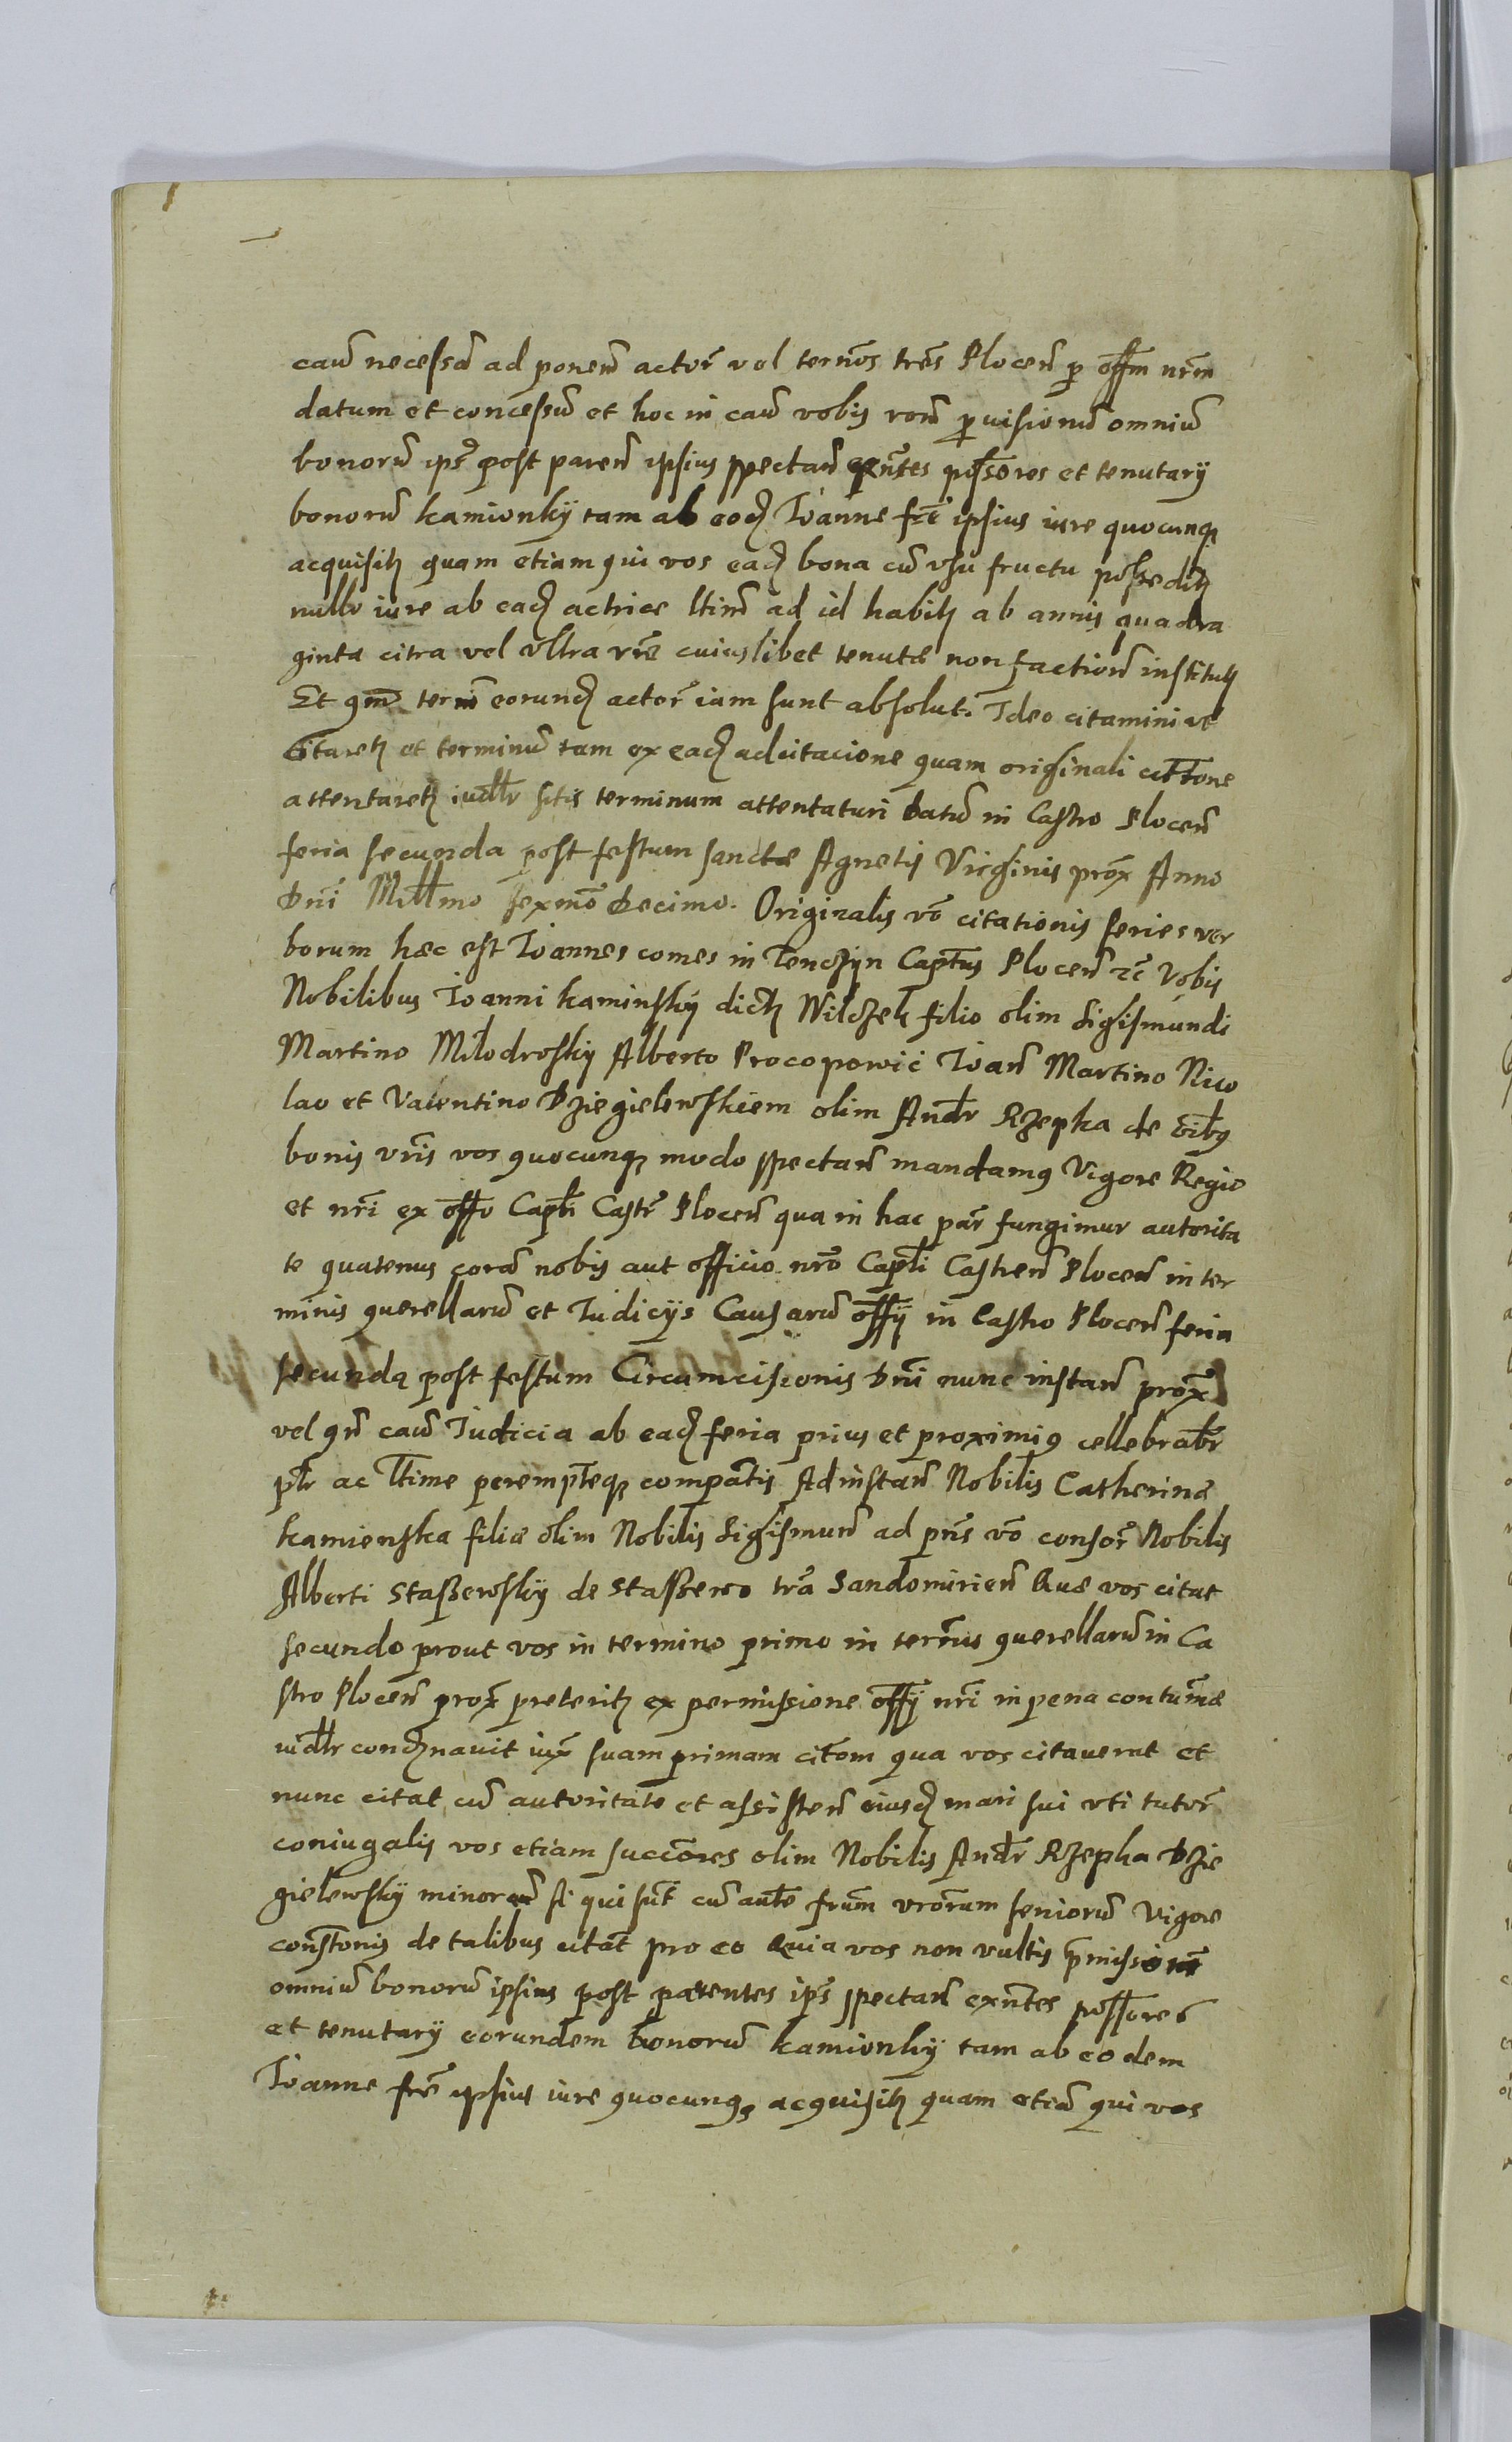 caū necessā ad ponenū actor̃ vel term̃os tr̃es Plocen̄ p off̃m nr̃m
datum et concessū et hoc in caū vobis ron̄e p̱uisionū omniū
bonorū ips̃ post paren̄ ipsius spectan̄ exn̄tes possores et tenutarij
bonorū Kamionky tam ab eoḏ Ioanne fr̃e ipsius iure quocunq̨
acquisitis quam etiam qui vos eaḏ bona cū vsu fructu possedistis
nullo iure ab eaḏ actrice ltim̄o ad id habitis ab annis quadra
ginta citra vel vltra vr̃e cuiuslibet tenutæ non factionū institutis
Et qm̄ term̄ eorunḏ actor̃ iam sunt absoluti Ideo citamini vt
citaretis et terminū tam ex eaḏ adcitacione quam originali citt̃one
attentaretis iudr̃ sitis terminum attentaturi Datū in Castro Plocen̄
feria secunda post festum sanctæ Agnetis Virginis prox̃ Anno
Dn̄i Mill̃mo sexm̃o decimo. Originalis vo citationis series ver
borum hæc est Ioannes comes in Tenczyn Capt̃us Plocen̄ etc̃ Vobis
Nobilibus Ioanni Kaminsky dictis Wilczek filio olim Sigismundi
Martino Milodrosky Alberto Procopowic Ioan̄ Martino Nico
lao et Valentino Dziegielewskiem olim Andr̃ Rzepka de oĩbq
bonis vr̃is vos quocunq̨ modo spectan̄ mandamq Vigore Regio
et nr̃i ex off̃o Capl̃i Castr̃ Plocen̄ qua in hac par̃ fungimur autorita
te quatenus corā nobis aut officio nr̃o Capl̃i Castren̄ Plocen̄ in ter
minis querellarū et Iudicijs Causarū off̃ij in Castro Plocen̄ feria
secunda post festum Circumcisionis Dn̄i nunc instan̄ prox̃
vel qn̄ caū Iudicia ab eaḏ feria prius et proximiq cellebrabr̃
plr̃ ac ltime perempt̃eq̨ compatis Ad instan̄ Nobilis Catherinæ
Kamienska filiæ olim Nobilis Sigismun̄ ad pn̄s vo consor̃ Nobilis
Alberti Staßewsky de Staßewo tr̃a Sandomirien̄ Quæ vos citat
secundo prout vos in termino primo in term̄is querellarū in Ca
stro Plocen̄ prox̃ preteritis ex permissione off̃ij nr̃i in pena contum̄æ
iudr̃ conḏnauit iux̃ suam primam cit̃om qua vos citauerat et
nunc citat cū autoritate et assisten̄ eiusḏ mari sui vti tutor̃
coniugalis vos etiam succ̃ores olim Nobilis Andr̃ Rzepka Dzie
gielewsky minorū si qui sūt cū aut̃e frum̃ vr̃orum seniorū Vigore
const̃onis de talibus citāt pro eo Quia vos non vultis p̃missione
omniū bonorū ipsius post parentes ips̃ spectan̄ exn̄tes possores
et tenutarij eorundem bonorū Kamionky tam ab eodem
Ioanne fr̃e ipsius iure quocunq̨ acquisitis quam etiā qui vos